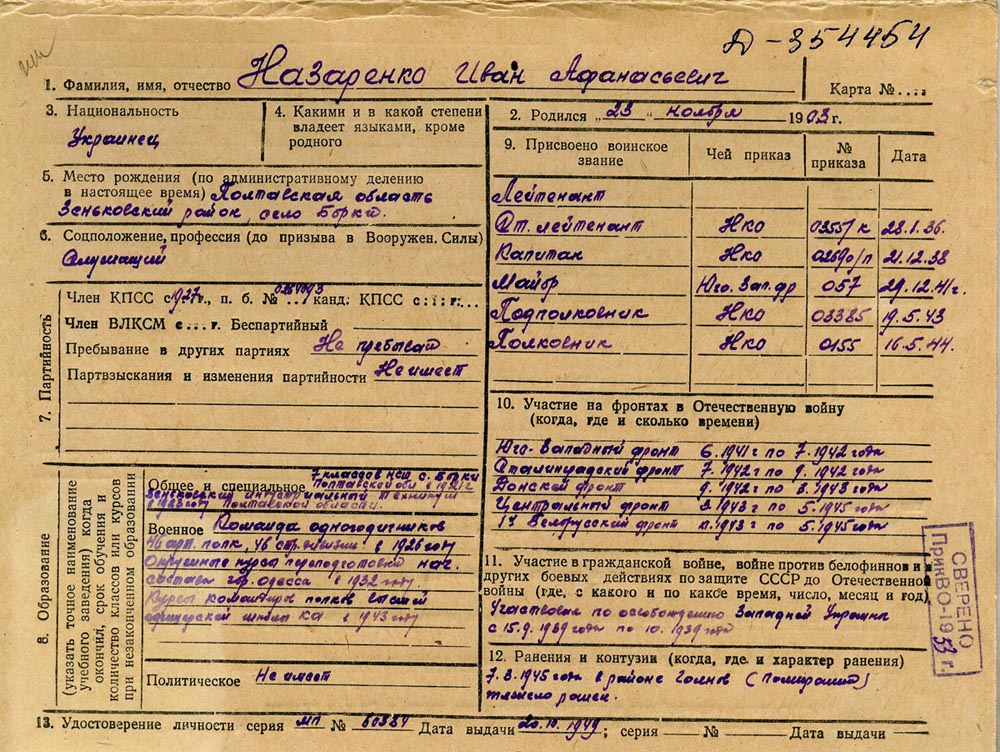 Д-354454
1. Фамилия, имя, отчество Назаренко Иван Афанасьевич
Карта №....
3. Национальность
Украинец
4. Какими и в какой степени
владеет языками, кроме
родного
2. Родился „23“ ноября 1903 г.
5. Место рождения (по административному делению
в настоящее время) Полтавская область
Зеньковский район, село Борки.
6. Соцположение, профессия (до призыва в Вооружен. Силы)
Служащий
7. Партийность
Член КПСС с 1927 г., п. б. № канд. КПСС с . . . г. . .
Член ВЛКСМ с . . . г. Беспартийный
Пребывание в других партиях Не пребывал
Партвзыскания и изменения партийности Не имеет
8. Образование
(указать точное наименование
учебного заведения) когда
окончил, срок обучения и
количество классов или курсов
при незаконченном образовании
Общее и специальное 7 классов НСШ с. Борки
Полтавской обл в 1921 г
Зеньковский индустриальный техникум
в 1923 году Полтавской области.
Военное Команда одногодичников
46 арт. полк, 46 стр. дивизии в 1926 году
Окружные курсы переподготовки нач.
состава гор. Одесса в 1932 году.
Курсы командиров полков высшей
офицерской школы КА в 1943 году
Политическое Не имеет
9. Присвоено воинское
звание
Чей приказ
№
приказа
Дата
Лейтенант
Ст. лейтенант НКО 0355/к 28.1.36.
Капитан НКО 02690/п 21.12.38
Майор Юго. Зап. фр 057 29.12.41 г.
Подполковник НКО 03385 19.5.43
Полковник НКО 0155 16.5.44.
10. Участие на фронтах в Отечественную войну
(когда, где и сколько времени)
Юго-Западный фронт 6.1941 г по 7.1942 года
Сталинградский фронт 7.1942 г по 9.1942 года
Донской фронт 9.1942 г по 3.1943 года
Центральный фронт 3.1943 г по 5.1945 года
1й Белорусский фронт 11.1943 г по 5.1945 года
11. Участие в гражданской войне, войне против белофиннов и
других боевых действиях по защите СССР до Отечественной
войны (где, с какого и по какое время, число, месяц и год)
Участвовал по освобождению Западной Украины
с 15.9.1939 года по 10.1939 года
12. Ранения и контузии (когда, где и характер ранения)
7.3.1945 года в районе (Померания)
тяжело ранен.
СВЕРЕНО
ПриВО-1953 г.
13. Удостоверение личности серия МП № 60384 Дата выдачи 20.10.1949; серия — № — Дата выдачи —